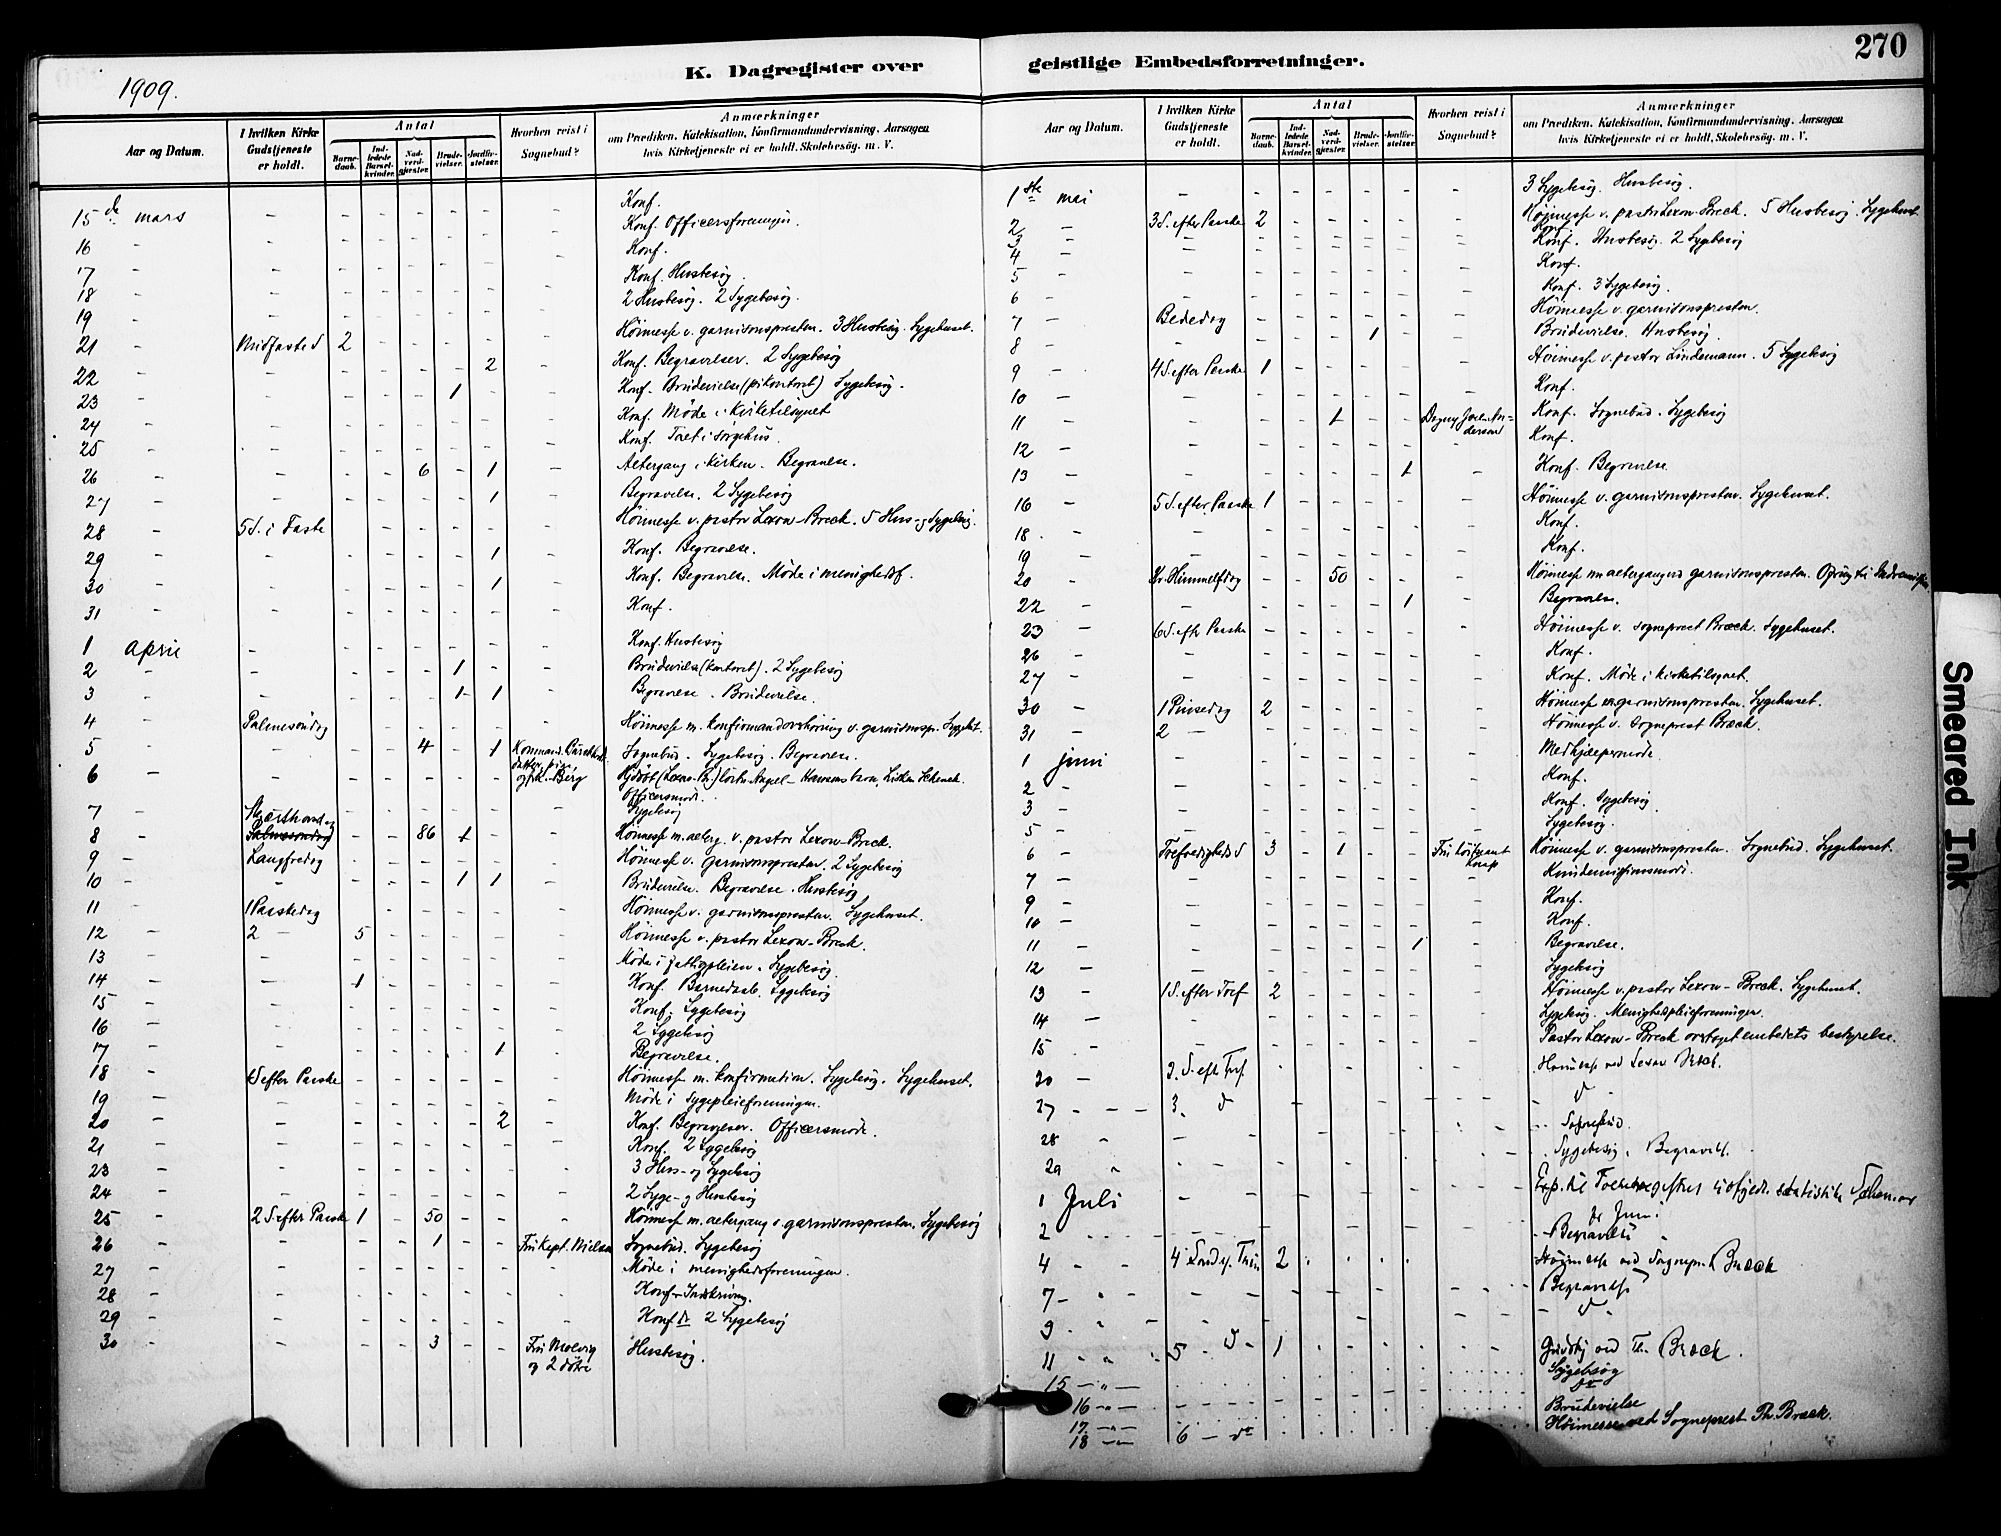 1909.
K. Dagregister over
geistlige Embedsforretninger.
270
Aar og Datum.
I hvilken Kirke Gudstjeneste er holdt.
Antal
Barnedaab.
Indledede Barselkvinder.
Nadverdgjæster.
Brudevielser.
Jordfæstelser.
Hvorhen reist i Sognebud?
Anmærkninger
om Prædiken, Katekisation, Konfirmandundervisning, Aarsagen
hvis Kirketjeneste ei er holdt, Skolebesøg. m. V.
15de mars - - - - - - - Konf.
16 - - - - - - - Konf. Officersforeningen.
17 - - - - - - - Konf.
18 - - - - - - - Konf. Husbesøg.
19 - - - - - - - 2 Husbesøg. 2 Sygebesøg.
21 - Midfaste S 2 - - - - - Høimesse v. garnisonspresten. 3 Husbesøg. Sygehuset.
22 - - - - - - 2 - Konf. Begravelser. 2 Sygebesøg
23 - - - - - 1 - - Konf. Brudevielse (på kontoret) Sygebesøg.
24 - - - - - - - - Konf. Møde i Kirketilsynet
25 - - - - - - - - Konf. Tret i sørgehus.
26 - - - - 6 - 1 - Altergang i Kirken. Begravelse.
27 - - - - - - 1 - Begravelse. 2 Sygebesøg
28 - 5 S. i Faste - - - - - Høimesse v. pastor Lexow-Breck. 5 Hus- og Sygebesøg.
29 - - - - - - 1 - Konf. Begravelse.
30 - - - - - - 1 - Konf. Begravelse. Møde i menighedsf.
31 - - - - - - - - Konf.
1 April - - - - - - - Konf. Husbesøg
2 - - - - - 1 - - Brudevielse (kontoret). 2 Sygebesøg
3 - - - - - 1 1 - Begravelse. Brudevielse.
4 - Palmesøndag - - - - - - Høimesse m. konfirmandoverhøring v. garnisonspr. Sygehuset.
5 - - - - 4 - 1 Sognebud. Sygebesøg. Begravelse.
6 - - - - - - - og frk. Berg
Officersmøde.
7 - - - - - - - Sygebesøg
8 - Skjærthorsdag Palmesøndag - - 86 1 - - Høimesse m. alterg. v. pastor Lexow-Breck.
9 - Langfredag - - - - - - Høimesse v. garnisonspresten. 2 Sygebesøg
10 - - - - - 1 1 - Brudevielse. Begravelse. Husbesøg
11 - 1 Paaskedag - - - - - Høimesse v. garnisonspresten. Sygehuset.
12 - 2 - 5 - - - - - Høimesse v. pastor Lexow-Breck.
13 - - - - - - - - Møde i fattigpleien. Sygebesøg.
14 - - 1 - - - - - Konf. Barnedaab. Sygebesøg
15 - - - - - - - - Konf. Sygebesøg
16 - - - - - - - - 2 Sygebesøg
17 - - - - - - 1 - Begravelse.
18 - 1 S efter Paaske - - - - - - Høimesse m. konfirmation. Sygebesøg. Sygehuset.
19 - - - - - - - - Møde i Sygepleieforeningen.
20 - - - - - - 2 - Konf. Begravelser. Officersmøde.
21 - - - - - - - - Konf. 2 Sygebesøg
23 - - - - - - - - 3 Hus- og Sygebesøg
24 - - - - - - - - 2 Syge- og Husbesøg
25 - 2 S. efter Paaske 1 - 50 - - - Høimesse m. altergang v. garnisonspresten. Sygebesøg
26 - - - - 1 - - Fru Kapt. Nielsen Sognebud. Sygebesøg
27 - - - - - - - - Møde i menighedsforeningen.
28 - - - - - - - - Konf-Indskrivning.
29 - - - - - - - - Konf do 2 Sygebesøg
30 - - - - 3 - - Fru Molvig og 2 døtre Husbesøg.
Aar og Datum.
I hvilken Kirke Gudstjeneste er holdt.
Antal
Barnedaab.
Indledede Barselkvinder.
Nadverdgjæster.
Brudevielser.
Jordfæstelser.
Hvorhen reist i Sognebud?
Anmærkninger
om Prædiken, Katekisation, Konfirmandundervisning, Aarsagen
hvis Kirketjeneste ei er holdt, Skolebesøg. m. V.
1ste mai - - - - - - - 3 Sygebesøg. Husbesøg.
2 - 3 S. efter Paaske 2 - - - - - Høimesse v. pastor Lexow-Breck. 5 Husbesøg. Sygehuset.
3 - - - - - - - - Konf.
4 - - - - - - - - Konf. Husbesøg. 2 Sygebesøg
5 - - - - - - - - Konf.
6 - - - - - - - - Konf. 3 Sygebesøg.
7 - Bededag - - - - - - Høimesse v. garnisonspresten.
8 - - - - - 1 - - Brudevielse. Husbesøg.
9 - 4 S. efter Paaske 1 - - - - - Høimesse v. pastor Lindemann. 5 Sygebesøg
10 - - - - - - - - Konf.
11 - - - - 1 - - Konf. Sognebud. Sygebesøg
12 - - - - - - - - Konf.
13 - - - - - - 1 - Konf. Begravelse
16 - 5 S. efter Paaske 1 - - - - - Høimesse v. garnisonspresten. Sygehuset.
18 - - - - - - - - Konf.
19 - - - - - - - - Konf.
20 - Kr. Himmelfdag - - 50 - - - Høimesse m altergang v garnisonspresten.
22 - - - - - - 1 - Begravelse.
23 - 6 S. eftr Paaske - - - - - - Høimesse v. sogneprest Bræck. Sygehuset.
26 - - - - - - - - Konf.
27 - - - - - - - - Konf. Møde i Kirketilsynet.
30 - 1 Pinsedag 2 - - - - - Høimesse v garnisonspresten. Sygehuset.
31 - 2 - - - - - - - Høimesse v. Sogneprest Bræck.
1 Juni - - - - - - - Medhjælpermøde.
2 - - - - - - - - Konf.
3 - - - - - - - - Konf. Sygebesøg
5 - - - - - - - - Sygebesøg.
6 - Trefoldigheds S 3 - 1 - - Høimesse v. garnisonspresten. Sognebud. Sygehuset.
7 - - - - - - - - Kvindemissionsmøde.
9 - - - - - - - - Konf.
10 - - - - - - - - Konf
11 - - - - - - 1 - Begravelse.
12 - - - - - - - - Sygebesøg
13 - 1 S. efter Tref 2 - - - - - Høimesse v. pastor Lexow-Breck. Sygehuset.
14 - - - - - - - - Sygebesøg. Menighedspleieforeningen.
15 - - - - - - - - Pastor Lexow-Breck overtaget embedets bestyrelse.
20 - 2. S. eft Tref - - - - - - Høimesse ved Lexow Breck.
27 - - 3. d - - - - - - d
28 " - - - - - - - Sognebud.
29 " - - - - - - - Sygebesøg. Begravelse.
1 Juli - - - - - - -
for Juni.
2 - - - - - - - - Begravelse
4 - 4 Sond e. Trin 2 - - - - - Høimesse ved Sognepr. Bræck
7 - - - - - - - - Begravelse
9 - - - - - - - - d
11 " 5 - d - 1 - - - - - Gudstj ved Th. Bræck.
15 - " - Sygebesøg
16 - " - do
17 - " - Brudevielse
18 - " - 6 - do Høimesse ved Sogneprest Th. Bræck.
Smeared Ink